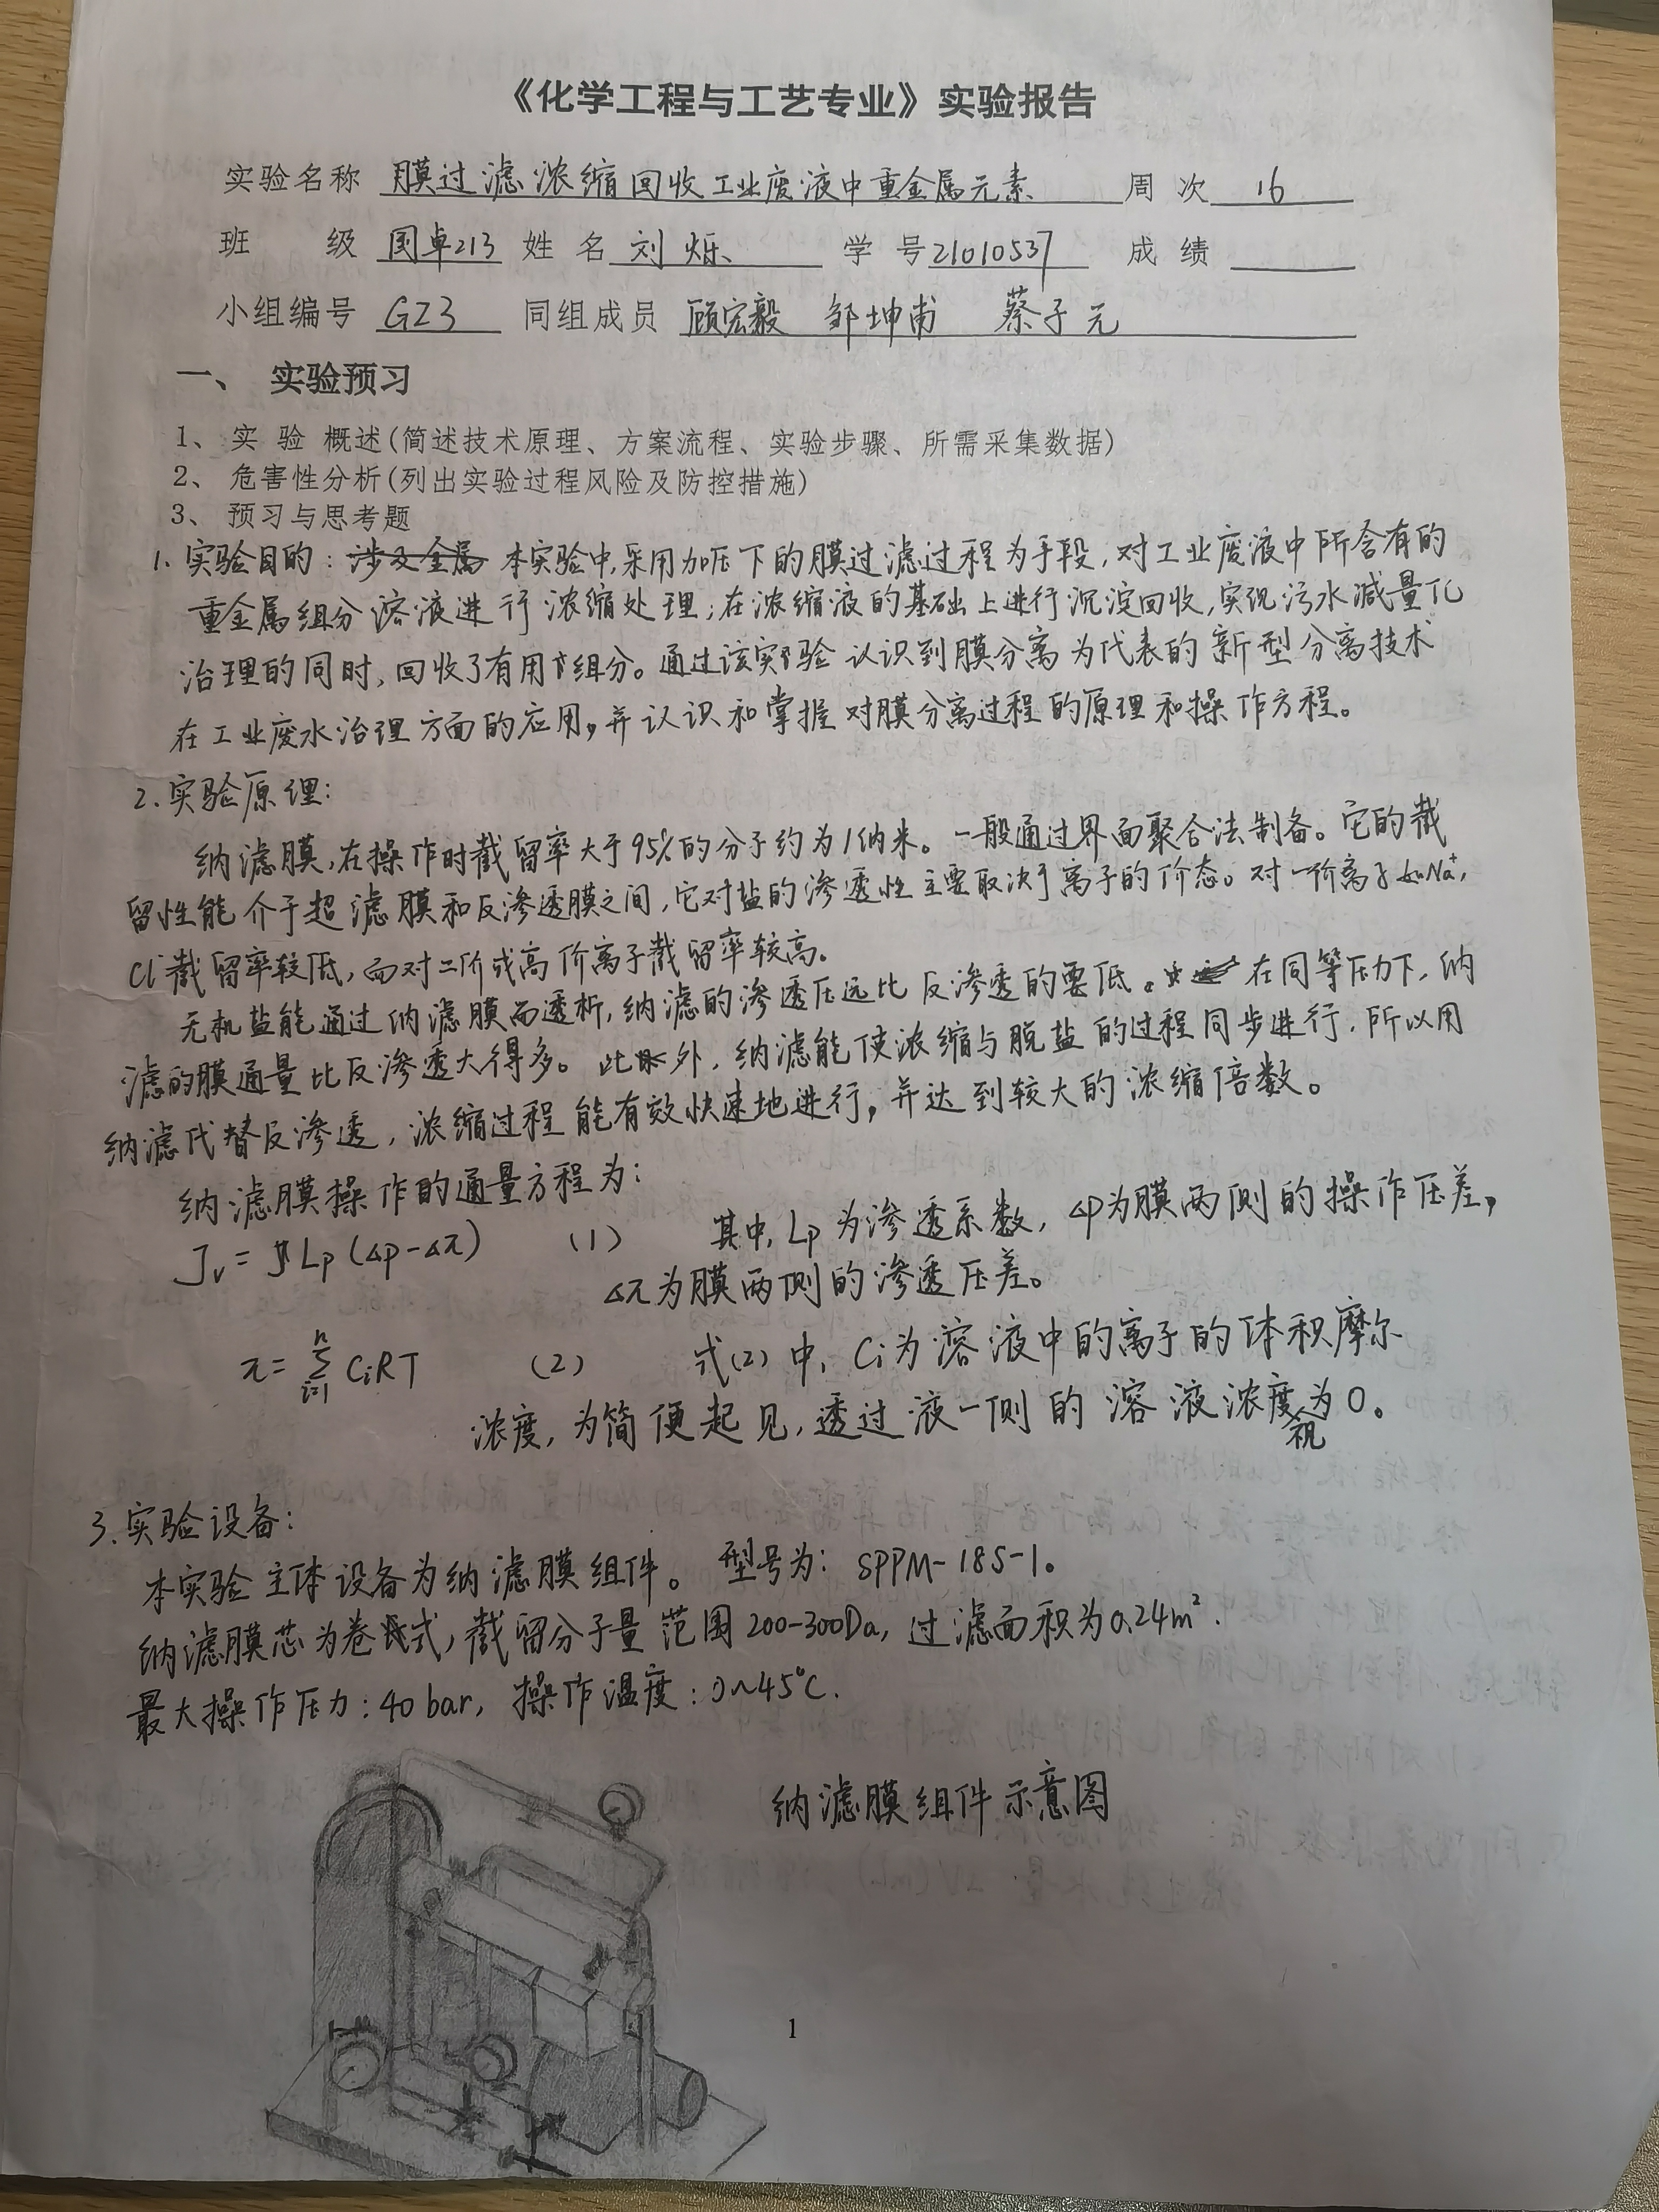 《化学工程与工艺专业》实验报告
实验名称 膜过滤浓缩回收工业废液中重金属元素 周次 16
班 级 国卓213 姓名 刘烁 学号 21010537 成绩
小组编号 GZ3 同组成员 顾宏毅 邹坤甫 蔡子元
一、 实验预习
1、 实 验 概述(简述技术原理、方案流程、实验步骤、所需采集数据)
2、 危害性分析(列出实验过程风险及防控措施)
3、 预习与思考题
1. 实验目的: 涉及金属 本实验中,采用加压下的膜过滤过程为手段,对工业废液中所含有的
重金属组分溶液进行浓缩处理;在浓缩液的基础上进行沉淀回收,实现污水减量化
治理的同时,回收了有用组分。通过该实验认识到膜分离为代表的新型分离技术
在工业废水治理方面的应用,并认识和掌握对膜分离过程的原理和操作方程。
2. 实验原理:
纳滤膜,在操作时截留率大于95%的分子约为1纳米。一般通过界面聚合法制备。它的截
留性能介于超滤膜和反渗透膜之间,它对盐的渗透性主要取决于离子的价态。对一价离子如Na⁺,
Cl⁻截留率较低,而对二价或高价离子截留率较高。
无机盐能通过纳滤膜而透析,纳滤的渗透压远比反渗透的要低。在同等压力下,纳
滤的膜通量比反渗透大得多。此外,纳滤能使浓缩与脱盐的过程同步进行,所以用
纳滤代替反渗透,浓缩过程能有效快速地进行,并达到较大的浓缩倍数。
纳滤膜操作的通量方程为:
Jv = Lp(Δp-Δπ) (1) 其中,Lp为渗透系数,Δp为膜两侧的操作压差,
Δπ为膜两侧的渗透压差。
π = Σⁿᵢ₌₁ CiRT (2) 式(2)中,Ci为溶液中的离子的体积摩尔
浓度,为简便起见,透过液一侧的溶液浓度视为0。
3. 实验设备:
本实验主体设备为纳滤膜组件。型号为: SPPM-185-1。
纳滤膜芯为卷式,截留分子量范围200-300Da,过滤面积为0.24m².
最大操作压力: 40 bar, 操作温度: 0~45℃.
纳滤膜组件示意图
1